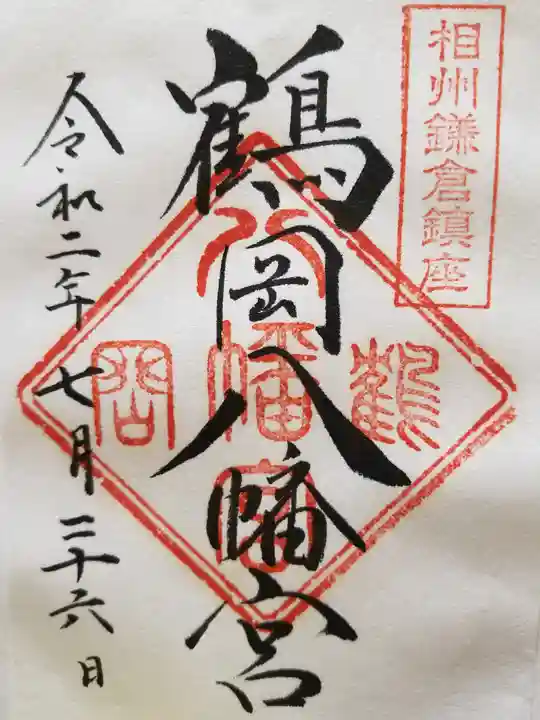 相州鎌倉鎮座
鶴岡八幡宮
鶴岡八幡宮
令和二年七月二十六日